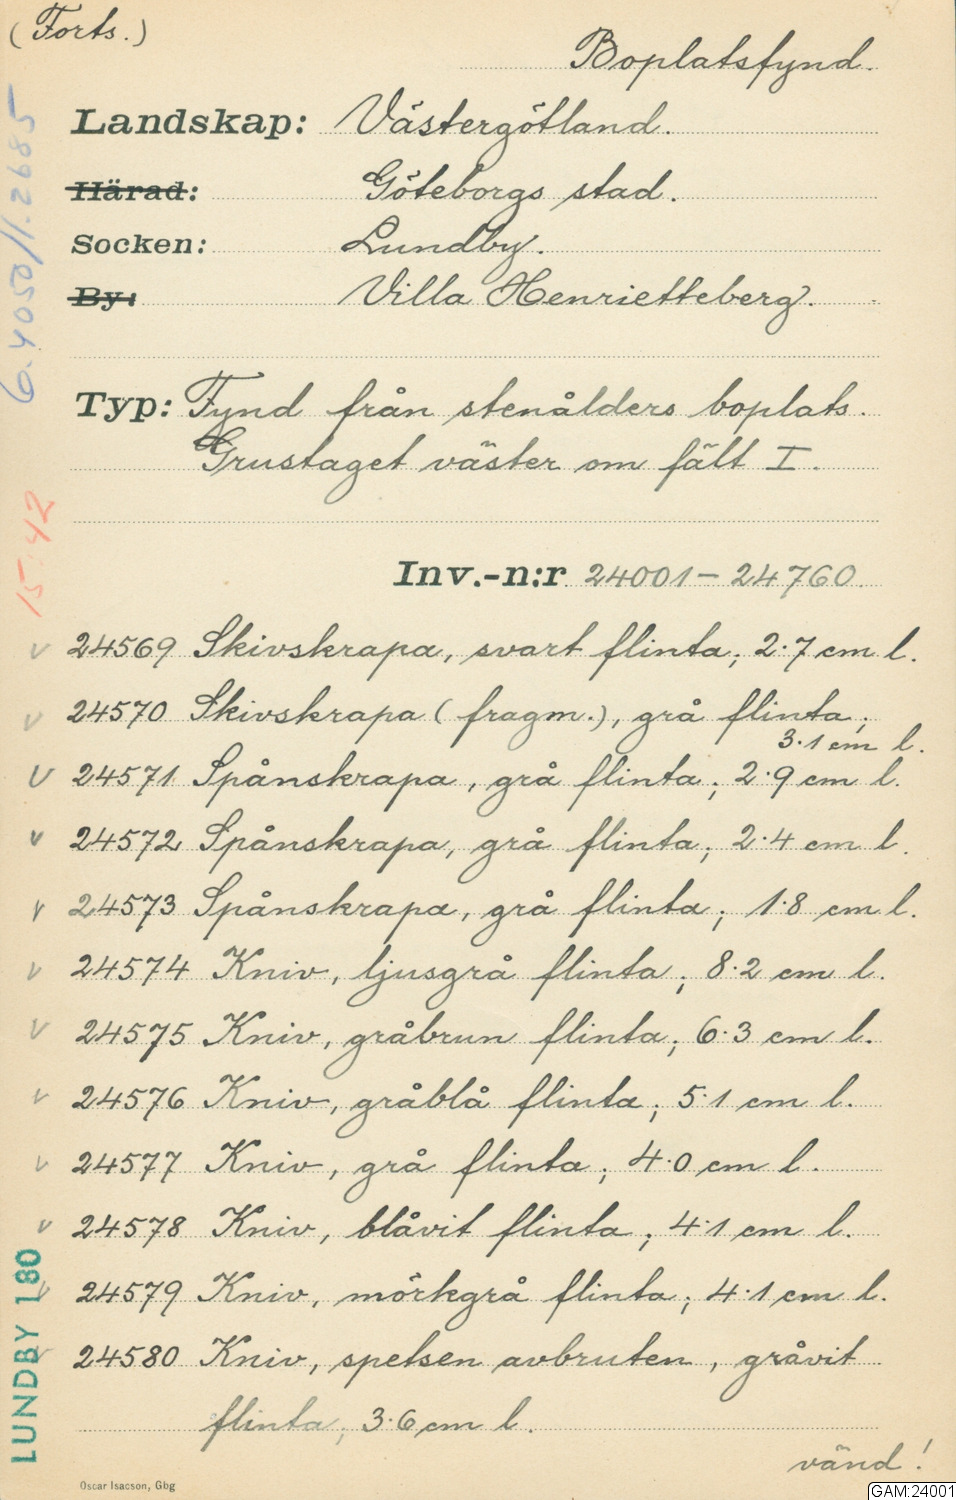 (Forts.)
Boplatsfynd.
Landskap: Västergötland.
Härad: Göteborgs stad.
Socken: Lundby.
By: Villa Henrietteberg.
Typ: Fynd från stenålders boplats.
Grustaget väster om fält I.
Inv.-n:r 24001-24760
v 24569 Skivskrapa, svart flinta; 2.7 cm l.
v 24570 Skivskrapa (fragm.), grå flinta;
3.1 cm l.
v 24571 Spånskrapa, grå flinta; 2.9 cm l.
v 24572 Spånskrapa, grå flinta; 2.4 cm l.
v 24573 Spånskrapa, grå flinta; 1.8 cm l.
v 24574 Kniv, ljusgrå flinta; 8.2 cm l.
v 24575 Kniv, gråbrun flinta; 6.3 cm l.
v 24576 Kniv, gråblå flinta; 5.1 cm l.
v 24577 Kniv, grå flinta; 4.0 cm l.
v 24578 Kniv, blåvit flinta; 4.1 cm l.
v 24579 Kniv, mörkgrå flinta; 4.1 cm l.
v 24580 Kniv, spetsen avbruten, gråvit
flinta; 3.6 cm l.
vänd!
Oscar Isacson, Gbg
GAM:24001
6.4050/1.2685
15:42
LUNDBY 180